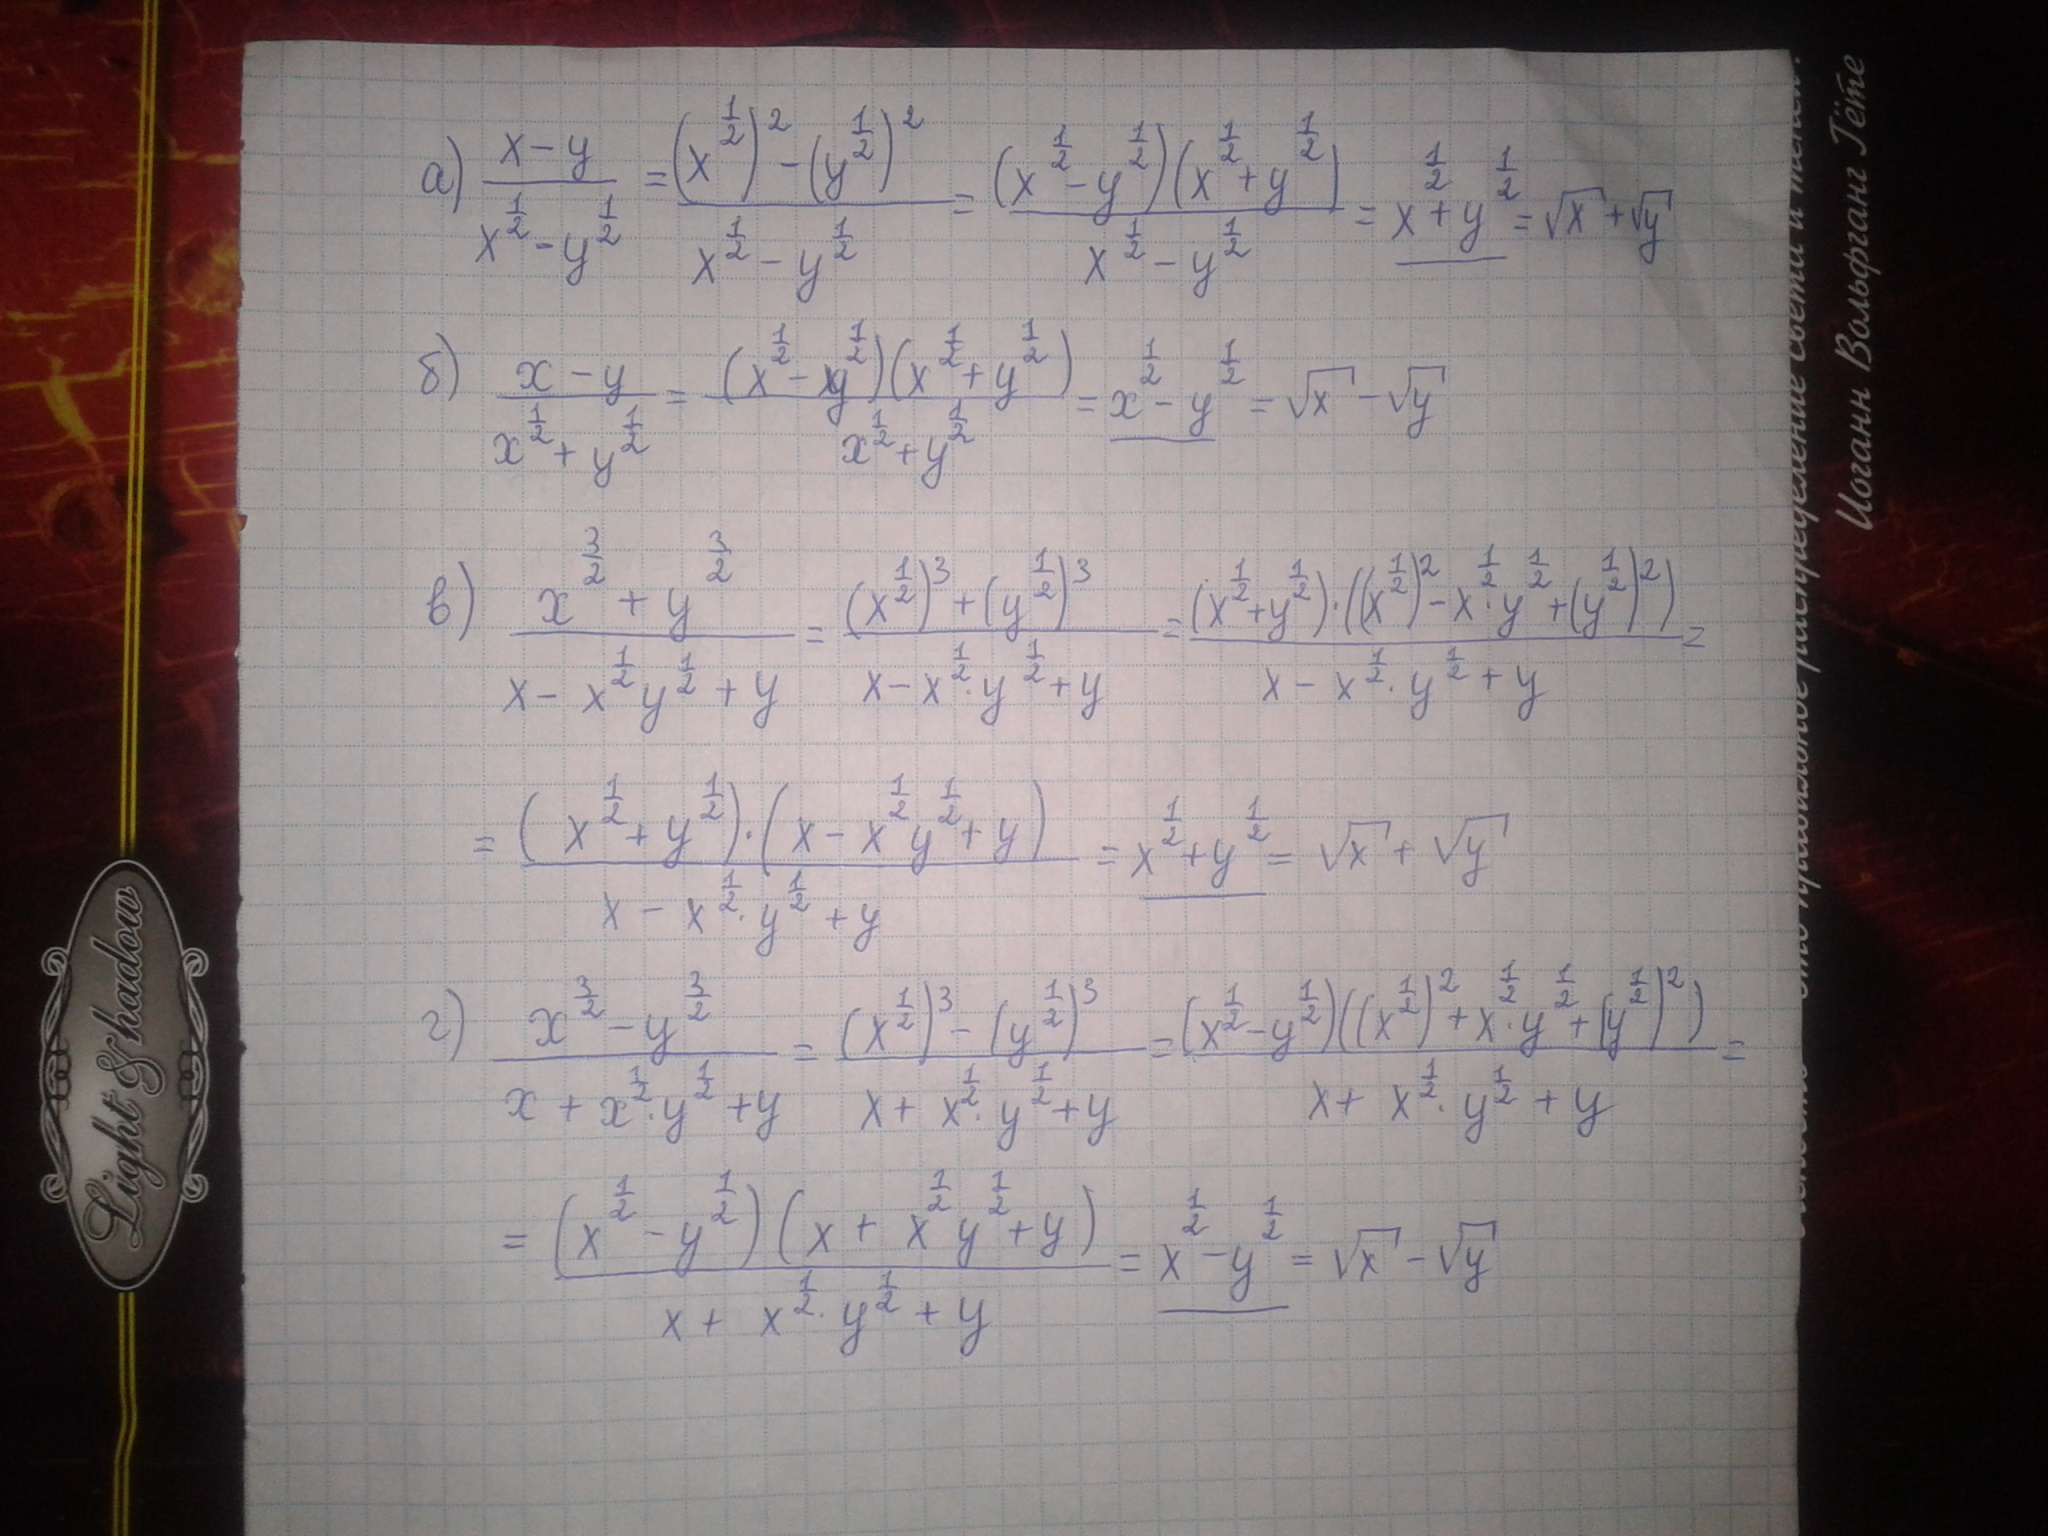 а) (x - y)/(x^{1/2} - y^{1/2}) = ((x^{1/2})^2 - (y^{1/2})^2)/(x^{1/2} - y^{1/2}) = ((x^{1/2} - y^{1/2})(x^{1/2} + y^{1/2}))/(x^{1/2} - y^{1/2}) = x^{1/2} + y^{1/2} = √x + √y
б) (x - y)/(x^{1/2} + y^{1/2}) = ((x^{1/2} - y^{1/2})(x^{1/2} + y^{1/2}))/(x^{1/2} + y^{1/2}) = x^{1/2} - y^{1/2} = √x - √y
в) (x^{3/2} + y^{3/2})/(x - x^{1/2}y^{1/2} + y) = ((x^{1/2})^3 + (y^{1/2})^3)/(x - x^{1/2}·y^{1/2} + y) = ((x^{1/2} + y^{1/2})·((x^{1/2})^2 - x^{1/2}·y^{1/2} + (y^{1/2})^2))/(x - x^{1/2}·y^{1/2} + y) =
= ((x^{1/2} + y^{1/2})·(x - x^{1/2}y^{1/2} + y))/(x - x^{1/2}·y^{1/2} + y) = x^{1/2} + y^{1/2} = √x + √y
г) (x^{3/2} - y^{3/2})/(x + x^{1/2}·y^{1/2} + y) = ((x^{1/2})^3 - (y^{1/2})^3)/(x + x^{1/2}·y^{1/2} + y) = ((x^{1/2} - y^{1/2})((x^{1/2})^2 + x^{1/2}·y^{1/2} + (y^{1/2})^2))/(x + x^{1/2}·y^{1/2} + y) =
= ((x^{1/2} - y^{1/2})(x + x^{1/2}y^{1/2} + y))/(x + x^{1/2}·y^{1/2} + y) = x^{1/2} - y^{1/2} = √x - √y
Light & shadow
распределение света и тени.
Иоганн Вольфганг Гёте